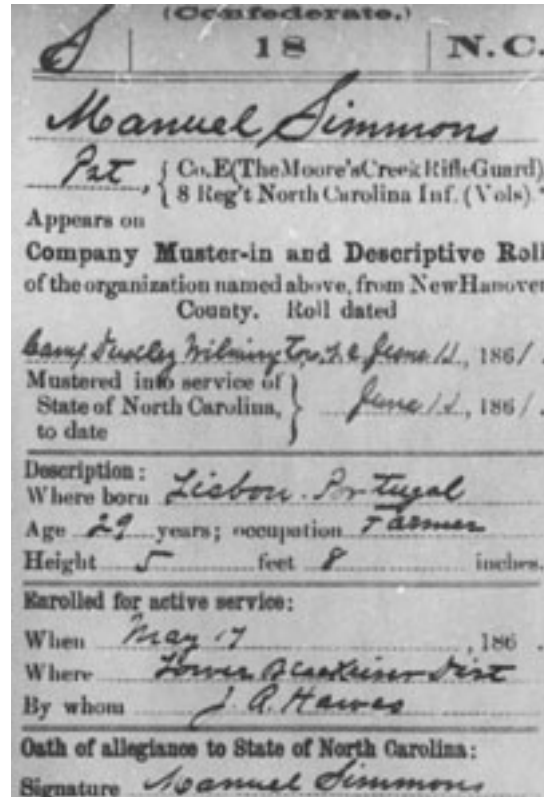 (Confederate.)
S | 18 | N. C.
Manuel Simmons
Pvt, { Co. E (The Moore's Creek Rifle Guard)
8 Reg't North Carolina Inf. (Vols).*
Appears on
Company Muster-in and Descriptive Roll
of the organization named above, from New Hanover
County. Roll dated
Camp Wilmington, N.C. June, 1861.
Mustered into service of
State of North Carolina, } June, 1861.
to date
Description:
Where born Lisbon Portugal
Age 29 years; occupation Farmer
Height 5 feet 8 inches.
Enrolled for active service:
When May 17, 186 .
Where Lower Dist
By whom J. A. Hawes
Oath of allegiance to State of North Carolina:
Signature Manuel Simmons